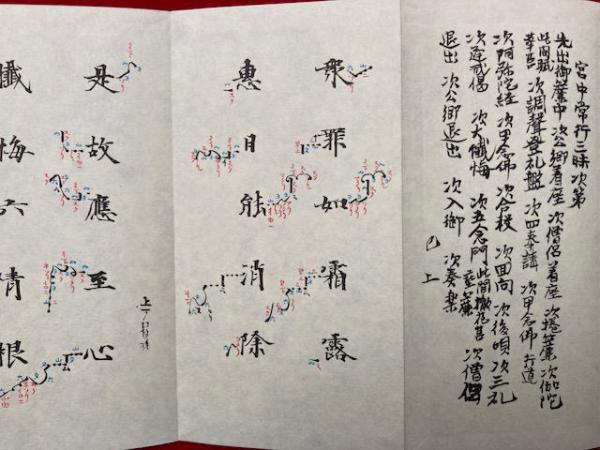 宮中常行三昧次第
先出御簾中 次公卿着座 次僧侶着座 次捲簾 次伽陀
此間賦
華筥 次調聲登礼盤 次四奉請 次甲念佛 行道
次阿弥陀経 次甲念佛 次合殺 次回向 次後唄 次三礼
次七仏通戒偈 次大懺悔 次五念門 此間撤花筥
垂簾 次僧侶
退出 次公卿退出 次入御 次奏楽
已上
衆罪如霜露
惠日能消除
是故應至心
懺悔六情根